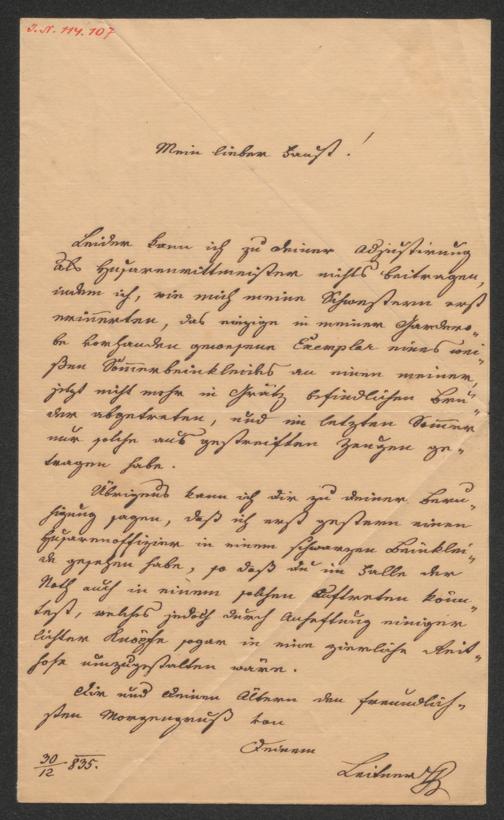 I.N. 114.107
Mein lieber Faust!
Leider kann ich zu deiner Adjustirung
als Husarenrittmeister nichts beitragen,
indem ich, wie mich meine Schwestern erst
erinnerten, das einzige in meiner Gardero-
be vorhanden gewesene Exemplar eines wei-
ßen Sommerbeinkleides an einen meiner,
jetzt nicht mehr in Grätz befindlichen Brü-
der abgetreten, und im letzten Sommer
nur solche aus gestreiften Zeugen ge-
tragen habe.
Übrigens kann ich dir zu deiner Beru-
higung sagen, daß ich erst gestern einen
Husarenoffizier in einem schwarzen Beinklei-
de gesehen habe, so daß du im Falle der
Noth auch in einem solchen auftreten könn-
test, welches jedoch durch Anheftung einiger
lichter Knöpfe sogar in eine zierliche Reit-
hose umzugestalten wäre.
Dir und deinen Ältern den freundlich-
sten Morgengruß von
Deinem
30/12 835.
Leitner